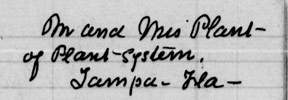 Mr and Mrs Plant-
of Plant-System.
Tampa- Fla-